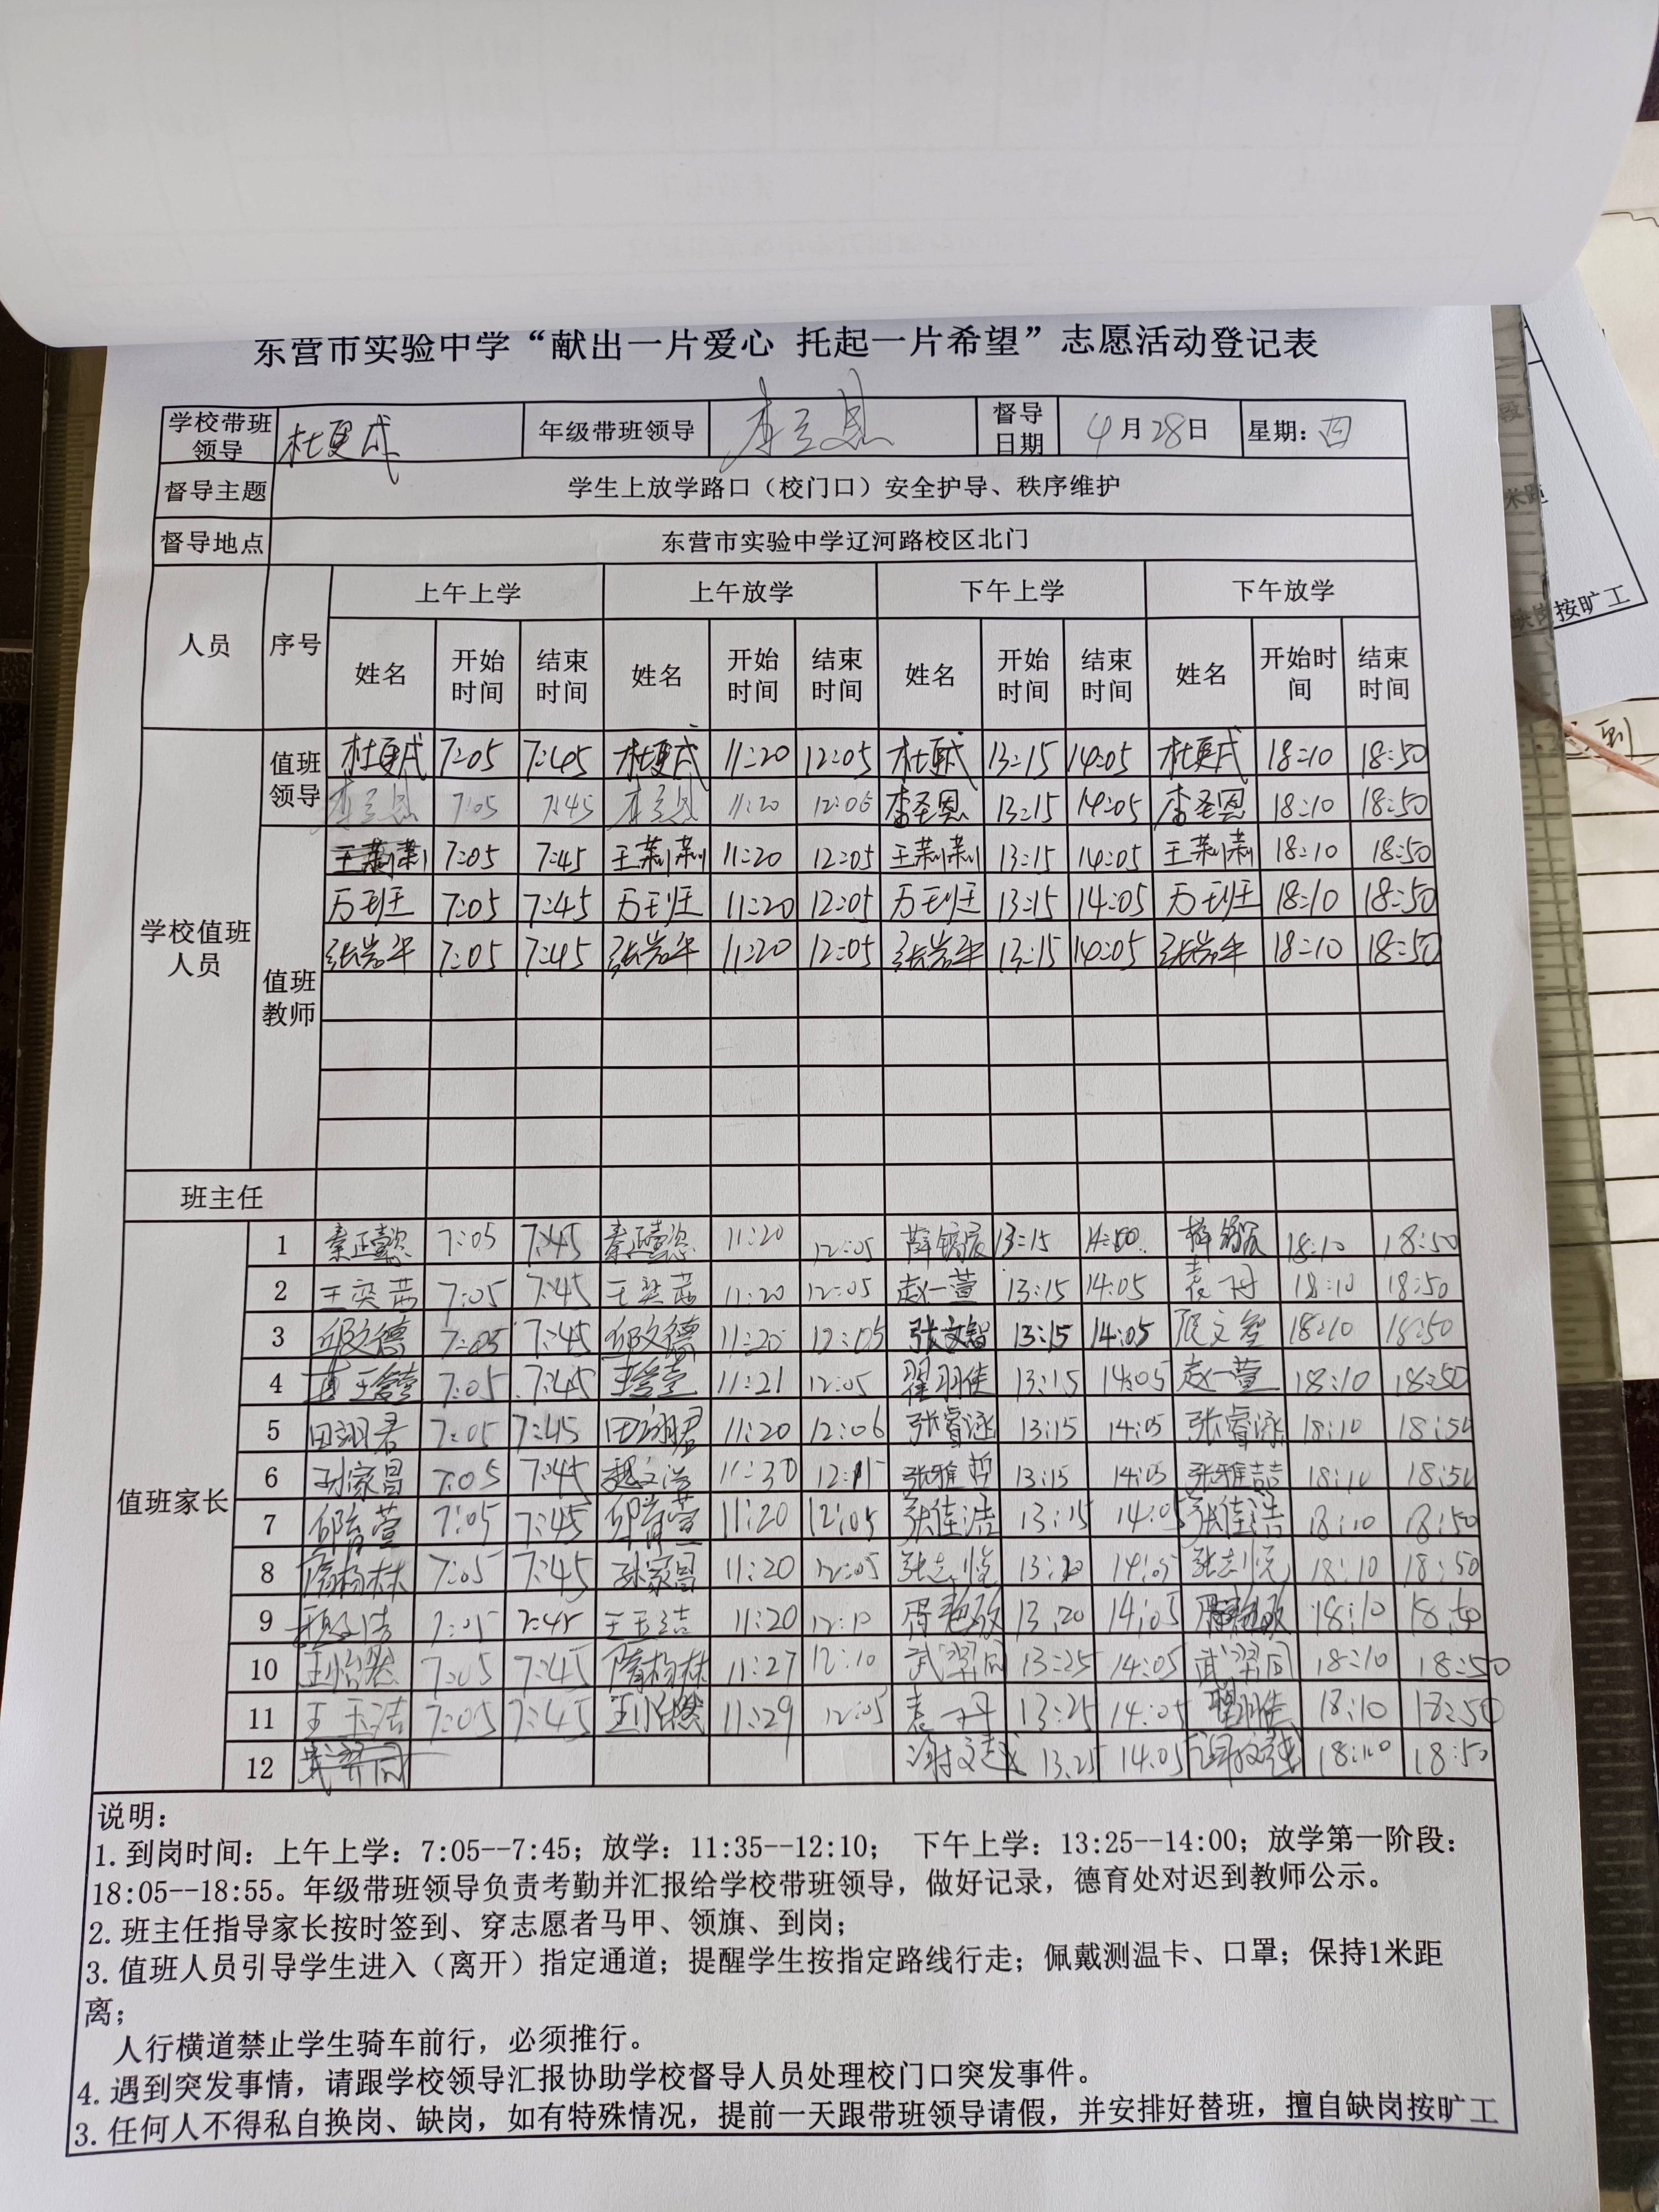 东营市实验中学“献出一片爱心 托起一片希望”志愿活动登记表
学校带班领导 杜更式 年级带班领导 李圣恩 督导日期 4月28日 星期：四
督导主题 学生上放学路口（校门口）安全护导、秩序维护
督导地点 东营市实验中学辽河路校区北门
人员 序号 上午上学 上午放学 下午上学 下午放学
姓名 开始时间 结束时间 姓名 开始时间 结束时间 姓名 开始时间 结束时间 姓名 开始时间 结束时间
学校值班人员
值班领导
杜更式 7:05 7:45 杜更式 11:20 12:05 杜更式 13:15 14:05 杜更式 18:10 18:50
李圣恩 7:05 7:45 李圣恩 11:20 12:05 李圣恩 13:15 14:05 李圣恩 18:10 18:50
值班教师
王莉莉 7:05 7:45 王莉莉 11:20 12:05 王莉莉 13:15 14:05 王莉莉 18:10 18:50
万 7:05 7:45 万 11:20 12:05 万 13:15 14:05 万 18:10 18:50
张岩平 7:05 7:45 张岩平 11:20 12:05 张岩平 13:15 14:05 张岩平 18:10 18:50
班主任
值班家长
1 秦正懿 7:05 7:45 秦正懿 11:20 12:05 13:15 18:10 18:50
2 王奕茜 7:05 7:45 王奕茜 11:20 12:05 赵一萱 13:15 14:05 袁丹 18:10 18:50
3 邱文德 7:05 7:45 邱文德 11:20 12:05 张文智 13:15 14:05 张文智 18:10 18:50
4 7:05 7:45 11:21 12:05 翟羽佳 13:15 14:05 赵一萱 18:10 18:50
5 田翊君 7:05 7:45 田翊君 11:20 12:06 张睿涵 13:15 14:05 张睿涵 18:10 18:50
6 孙家昌 7:05 7:45 11:30 12:15 张雅哲 13:15 14:05 张雅喆 18:10 18:50
7 邱育萱 7:05 7:45 邱育萱 11:20 12:05 张佳浩 13:15 14:05 张佳浩 18:10 18:50
8 隋杨林 7:05 7:45 孙家昌 11:20 12:05 张志悦 13:20 14:05 张志悦 18:10 18:50
9 7:05 7:45 王玉洁 11:20 12:10 13:20 14:05 18:10 18:50
10 王怡然 7:05 7:45 隋杨林 11:27 12:10 武羿同 13:25 14:05 武羿同 18:10 18:50
11 王玉洁 7:05 7:45 王怡然 11:29 12:05 袁丹 13:25 14:05 翟羽佳 18:10 18:50
12 13:25 14:05 18:10 18:50
说明：
1. 到岗时间：上午上学：7:05--7:45；放学：11:35--12:10； 下午上学：13:25--14:00；放学第一阶段：
18:05--18:55。年级带班领导负责考勤并汇报给学校带班领导，做好记录，德育处对迟到教师公示。
2. 班主任指导家长按时签到、穿志愿者马甲、领旗、到岗；
3. 值班人员引导学生进入（离开）指定通道；提醒学生按指定路线行走；佩戴测温卡、口罩；保持1米距
离；
人行横道禁止学生骑车前行，必须推行。
4. 遇到突发事情，请跟学校领导汇报协助学校督导人员处理校门口突发事件。
3. 任何人不得私自换岗、缺岗，如有特殊情况，提前一天跟带班领导请假，并安排好替班，擅自缺岗按旷工
段
米距
缺岗按旷工
到